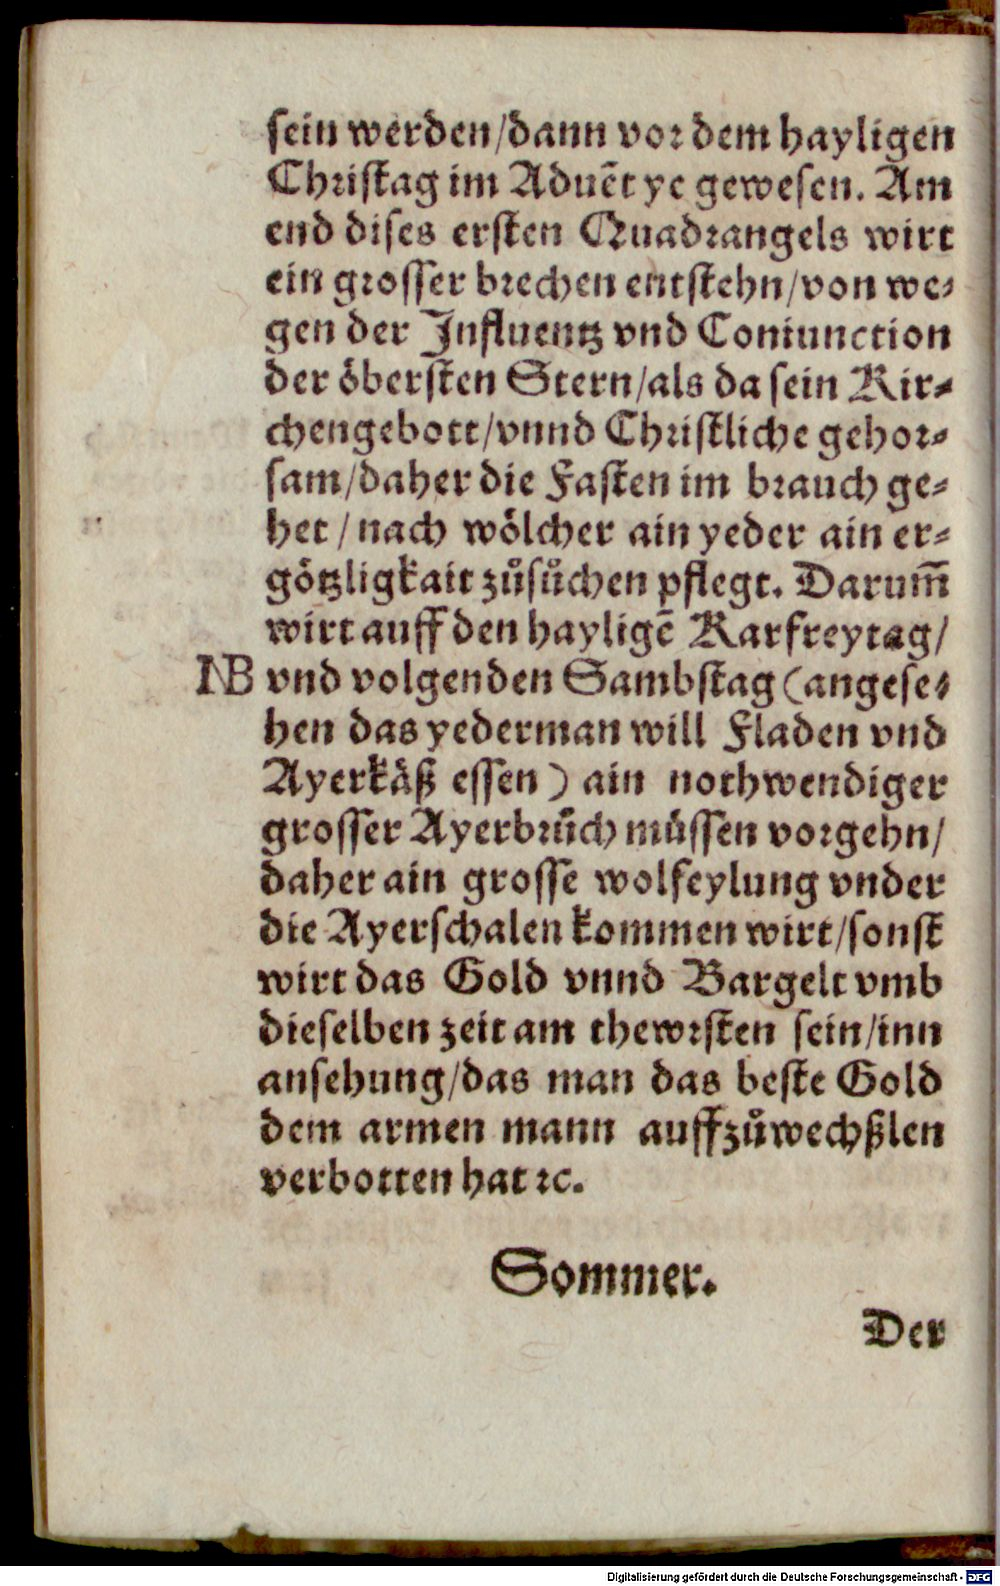 sein werden/dann vor dem hayligen
Christag im Aduẽt ye gewesen. Am
end dises ersten Quadrangels wirt
ein grosser brechen entstehn/von we-
gen der Influentz vnd Coniunction
der öbersten Stern/als da sein Kir-
chengebott/vnnd Christliche gehor-
sam/daher die Fasten im brauch ge-
het/nach wölcher ain yeder ain er-
götzligkait zůsůchen pflegt. Darum̃
wirt auff den hayligẽ Karfreytag/
NB vnd volgenden Sambstag (angese-
hen das yederman will Fladen vnd
Ayerkäß essen) ain nothwendiger
grosser Ayerbrůch müssen vorgehn/
daher ain grosse wolfeylung vnder
die Ayerschalen kommen wirt/sonst
wirt das Gold vnnd Bargelt vmb
dieselben zeit am thewrsten sein/inn
ansehung/das man das beste Gold
dem armen mann auffzůwechßlen
verbotten hat ꝛc.
Sommer.
Der
Digitalisierung gefördert durch die Deutsche Forschungsgemeinschaft - DFG